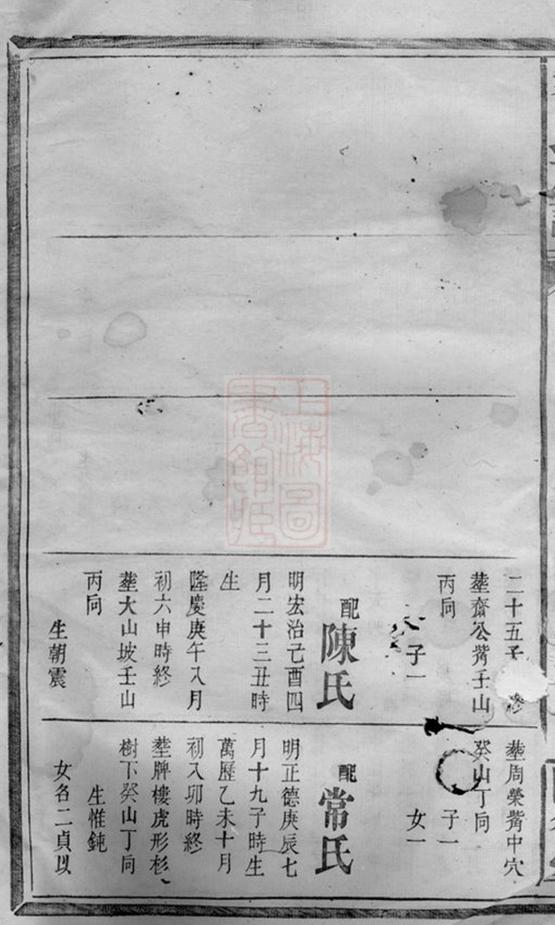 二十五子
塟齋公觜壬山
丙向
子一
配
陳氏
明宏治己酉四
月二十三丑時
生
隆慶庚午八月
初六申時終
塟大山坡壬山
丙向
生朝震
塟周榮觜中穴
癸山丁向
子一
女一
配
常氏
明正德庚辰七
月十九子時生
萬歷乙未十月
初八卯時終
塟牌樓虎形杉
樹下癸山丁向
生惟鈍
女各二貞以
上海圖
書館藏